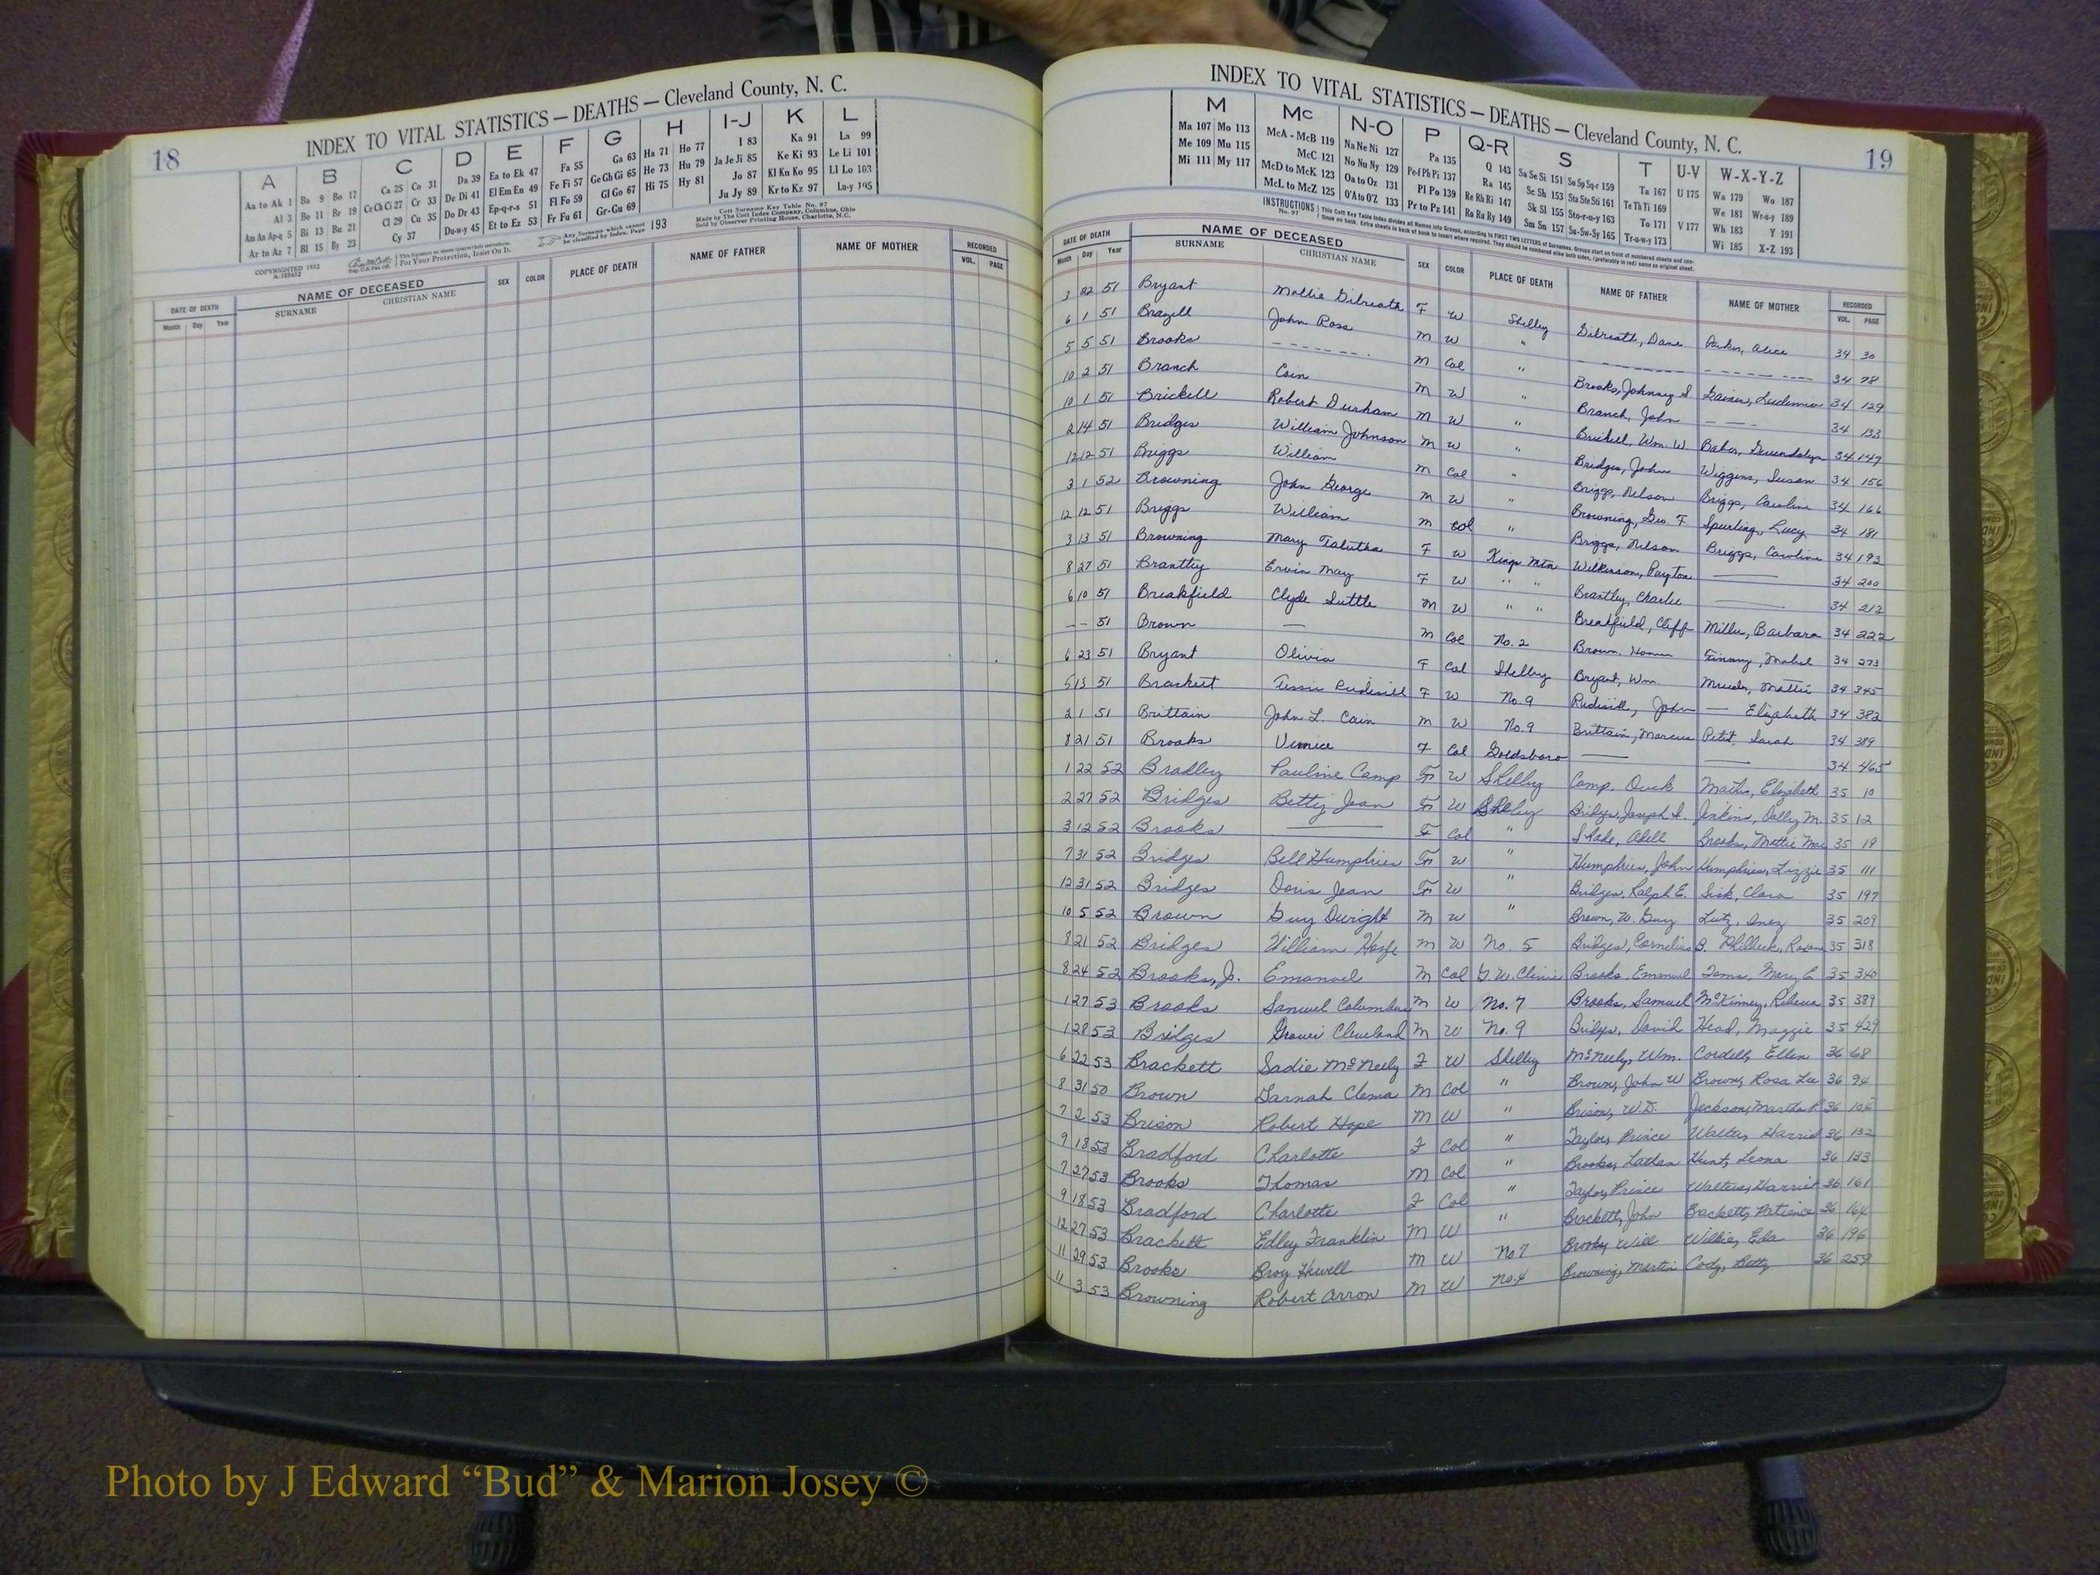 18
INDEX TO VITAL STATISTICS — DEATHS — Cleveland County, N. C.
A B C D E F G H I-J K L
Aa to Ak 1 Ba 9 Bo 17 Ca 25 Co 31 Da 39 Ea to Ek 47 Fa 55 Ga 63 Ha 71 Ho 77 I 83 Ka 91 La 99
Al 3 Be 11 Br 19 Ce Ch Ci 27 Cr 33 De Di 41 El Em En 49 Fe Fi 57 Ge Gh Gi 65 He 73 Hu 79 Ja Je Ji 85 Ke Ki 93 Le Li 101
Am An Ap-q 5 Bi 13 Bu 21 Cl 29 Cu 35 Do Dr 43 Ep-q-r-s 51 Fl Fo 59 Gl Go 67 Hi 75 Hy 81 Jo 87 Kl Kn Ko 95 Ll Lo 103
Ar to Az 7 Bl 15 By 23 Cy 37 Du-w-y 45 Et to Ez 53 Fr Fu 61 Gr-Gu 69 Ju Jy 89 Kr to Kz 97 Lu-y 105
COPYRIGHTED 1932
A-105632
For Your Protection, Insist On It.
Any Surname which cannot be classified by Index, Page 193
Cott Surname Key Table No. 97
Made by The Cott Index Company, Columbus, Ohio
Sold by Observer Printing House, Charlotte, N.C.
DATE OF DEATH NAME OF DECEASED SEX COLOR PLACE OF DEATH NAME OF FATHER NAME OF MOTHER RECORDED
Month Day Year SURNAME CHRISTIAN NAME VOL. PAGE
INDEX TO VITAL STATISTICS — DEATHS — Cleveland County, N. C.
19
M Mc N-O P Q-R S T U-V W-X-Y-Z
Ma 107 Mo 113 McA - McB 119 Na Ne Ni 127 Pa 135 Q 143 Sa Se Si 151 So Sp Sq-r 159 Ta 167 U 175 Wa 179 Wo 187
Me 109 Mu 115 McC 121 No Nu Ny 129 Pe-f Ph Pi 137 Ra 145 Sc Sh 153 Sta Ste Sti 161 Te Th Ti 169 We 181 Wr-u-y 189
Mi 111 My 117 McD to McK 123 Oa to Oz 131 Pl Po 139 Re Rh Ri 147 Sk Sl 155 Sto-r-u-y 163 To 171 V 177 Wh 183 Y 191
McL to McZ 125 O'A to O'Z 133 Pr to Pz 141 Ro Ru Ry 149 Sm Sn 157 Su-Sw-Sy 165 Tr-u-w-y 173 Wi 185 X-Z 193
INSTRUCTIONS No. 97
This Cott Key Table Index divides all Names into Groups, according to FIRST TWO LETTERS of Surnames.
DATE OF DEATH NAME OF DECEASED SEX COLOR PLACE OF DEATH NAME OF FATHER NAME OF MOTHER RECORDED
Month Day Year SURNAME CHRISTIAN NAME VOL. PAGE
3 22 51 Bryant Mollie Gilreath F W Shelby Gilreath, Dane Parker, Alice 34 30
6 1 51 Brazell John Ross M W " 34 78
5 5 51 Brooks M Col " Brooks, Johnney S 34 129
10 2 51 Branch Cain M W " Branch, John 34 133
10 1 51 Brickell Robert Durham M W " Brickell, Wm. W. Baker, Gwendolyn 34 147
2 14 51 Bridges William Johnson M W " Bridges, John Wiggins, Susan 34 156
12 12 51 Briggs William M Col " Briggs, Nelson Briggs, Caroline 34 166
3 1 52 Browning John George M W " Browning, Geo. F Spurling, Lucy 34 181
12 12 51 Briggs William M Col " Briggs, Nelson Briggs, Caroline 34 193
3 13 51 Browning Mary Tabitha F W Kings Mtn Wilkinson, Payton — 34 200
8 27 51 Brantley Ervin May F W " " Brantley, Charlie — 34 212
6 10 51 Breakfield Clyde Suttle M W " " Breakfield, Cliff Miller, Barbara 34 222
— — 51 Brown — M Col No. 2 Brown, Homer Finney, Mabel 34 273
6 23 51 Bryant Olivia F Col Shelby Bryant, Wm. Mattie 34 345
5 13 51 Brackett Tessie Rudisill F W No. 9 Rudisill, John — Elizabeth 34 382
2 1 51 Brittain John L. Cain M W No. 9 Brittain, Marcus Petit, Sarah 34 389
8 21 51 Brooks Vernice F Col Goldsboro — — 34 465
1 22 52 Bradley Pauline Camp F W Shelby Camp, Elizabeth 35 10
2 27 52 Bridges Betty Jean F W Shelby Bridges, Joseph Jenkins, Dolly M. 35 12
3 12 52 Brooks — F Col " Odell Brooks, Mattie Mae 35 19
7 31 52 Bridges Bell Humphries F W " Humphries, John Humphries, Lizzie 35 111
12 31 52 Bridges Doris Jean F W " Bridges, Ralph E. Sisk, Clara 35 197
10 5 52 Brown Guy Dwight M W " Brown, W. Guy Lutz, Inez 35 209
8 21 52 Bridges William M W No. 5 Bridges, Cornelius B. Philbeck, 35 318
8 24 52 Brooks, Jr. Emanoel M Col G.W. Clinic Brooks, Emanuel Toms, Mary E 35 340
1 27 53 Brooks Samuel Columbus M W No. 7 Brooks, Samuel McKinney, Rebecca 35 389
1 28 53 Bridges Grover Cleveland M W No. 9 Bridges, David Head, Maggie 35 429
6 22 53 Brackett Sadie McNeely F W Shelby McNeely, Wm. Cordell, Ellen 36 68
8 31 50 Brown Clema M Col " Brown, John W Brown, Rosa Lee 36 94
7 2 53 Brison Robert Hope M W " Brison, W.D. Jackson, Martha 36 104
9 18 53 Bradford Charlotte F Col " Taylor, Prince Walter, Harriet 36 132
7 27 53 Brooks Thomas M Col " Brooks, Hunt, Leona 36 133
9 18 53 Bradford Charlotte F Col " Taylor, Prince Walters, Harriet 36 161
12 27 53 Brackett Edley Franklin M W " Brackett, John Brackett, Patience 36 164
11 29 53 Brooks Broy Hewell M W No 7 Brooks, Will Wilkie, Eda 36 196
11 3 53 Browning Robert Arron M W No. 4 Browning, Martin Cody, Betty 36 259
Photo by J Edward “Bud” & Marion Josey ©